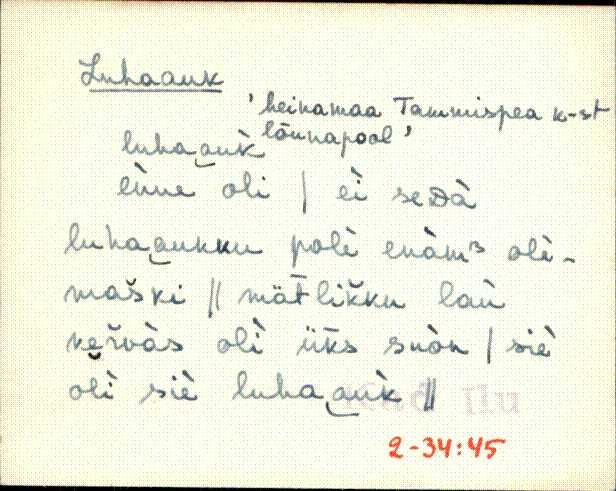 Luhaauk
'heinamaa Tammispea k-st
lõunapool'
luhaauk̀
ènne oli | èi seDà
luhaaukku polè enàmᴮ olè-
maški || mät̄likku laù
kervàs olì üks suòn | siè
olì siè luhaauk̀ ||
2-34:45